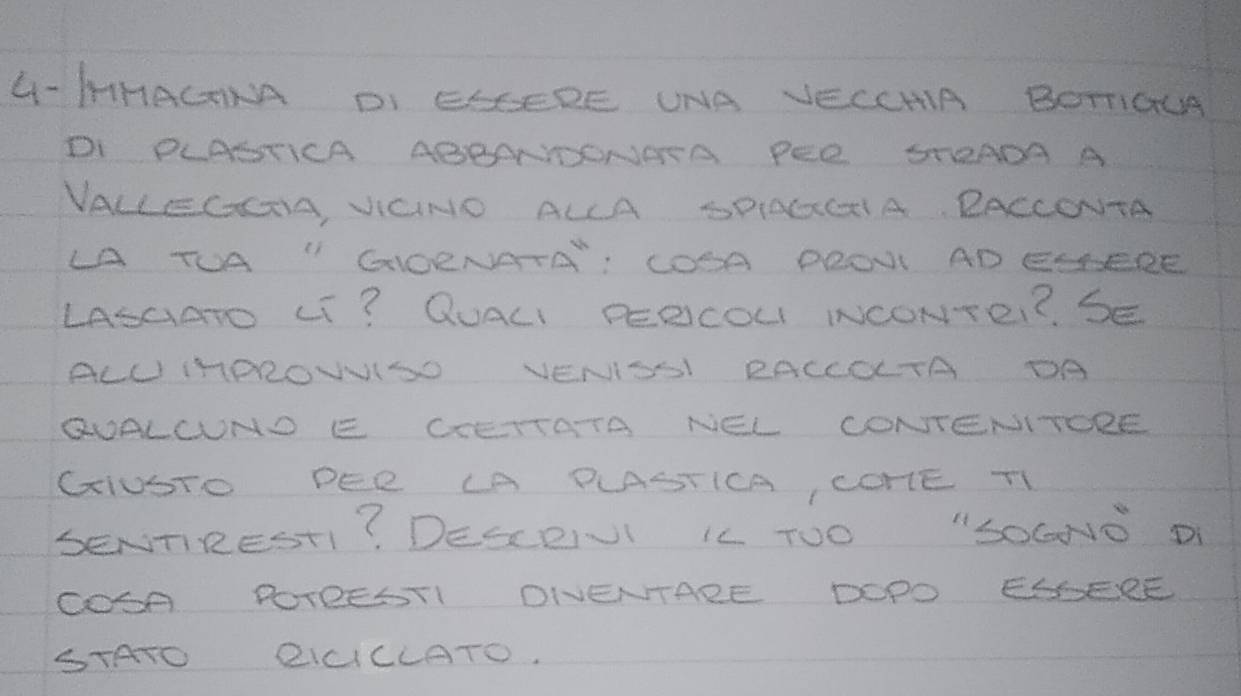 4- IMMAGINA DI ESSERE UNA VECCHIA BOTTIGLIA
DI PLASTICA ABBANDONATA PER STRADA A
VALLEGGIA, VICINO ALLA SPIAGGIA. RACCONTA
LA TUA "GIORNATA": COSA PROVI AD ESSERE
LASCIATO LÌ? QUALI PERICOLI INCONTRI? SE
ALL'IMPROVVISO VENISSI RACCOLTA DA
QUALCUNO E GETTATA NEL CONTENITORE
GIUSTO PER LA PLASTICA, COME TI
SENTIRESTI? DESCRIVI IL TUO "SOGNO" DI
COSA POTRESTI DIVENTARE DOPO ESSERE
STATO RICICLATO.